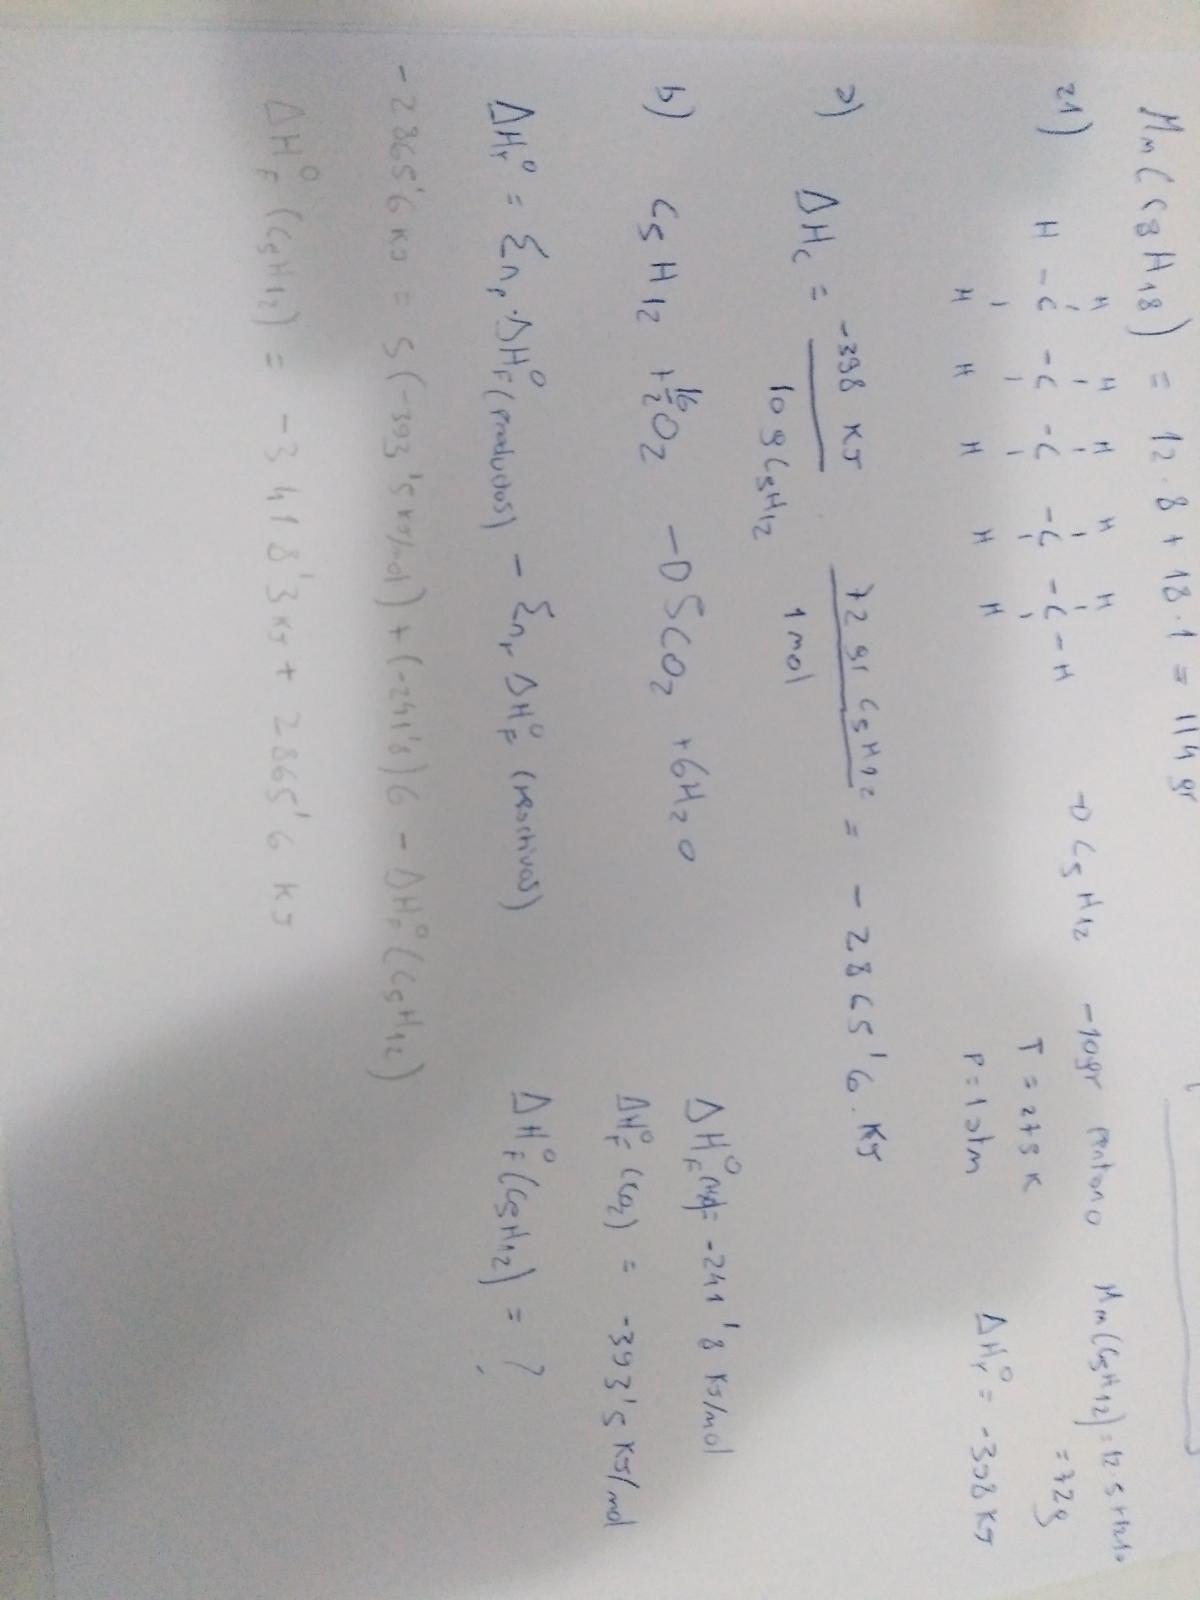 Mm(C8H18) = 12·8 + 18·1 = 114 gr
21) H H H H H
H-C-C-C-C-C-H → C5H12 -10gr pentano Mm(C5H12)=12·5+12·1=
H H H H H =72g
T = 273 K
P = 1 atm ΔHr° = -398 KJ
a) ΔHc = -398 KJ / 10 g C5H12 · 72 gr C5H12 / 1 mol = -2865'6 KJ
b) C5H12 + 16/2 O2 → 5CO2 + 6H2O
ΔHF°(H2O) = -241'8 KJ/mol
ΔHF°(CO2) = -393'5 KJ/mol
ΔHr° = Σnp·ΔHF°(productos) - Σnr ΔHF°(reactivos) ΔHF°(C5H12) = ?
-2865'6 KJ = 5(-393'5 KJ/mol) + (-241'8)6 - ΔHF°(C5H12)
ΔHF°(C5H12) = -3418'3 KJ + 2865'6 KJ